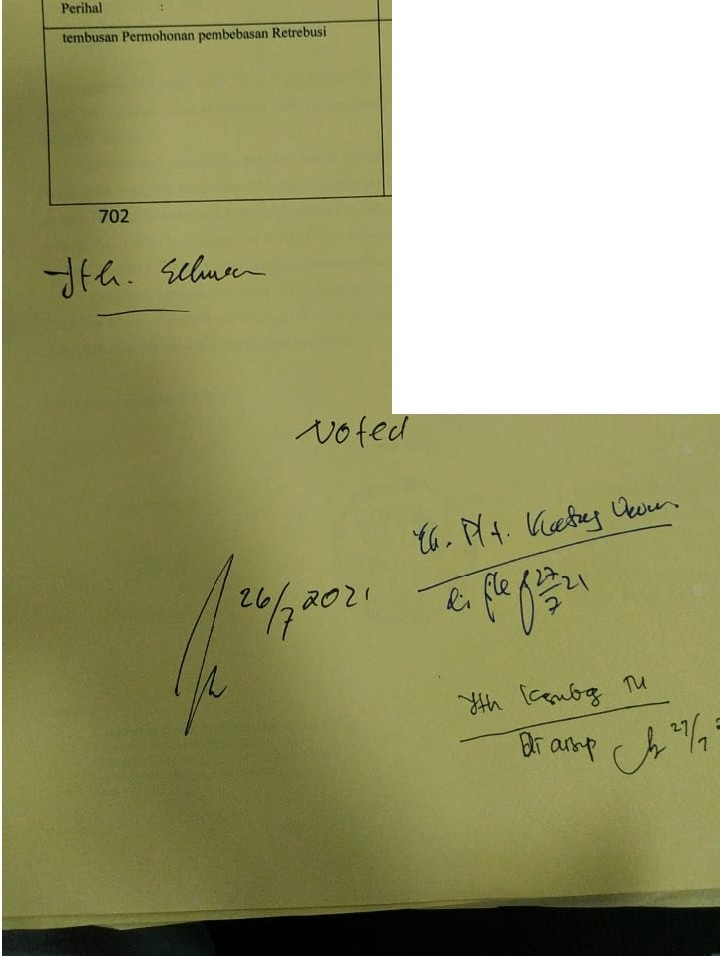 Perihal :
tembusan Permohonan pembebasan Retrebusi
702
Yth.
Noted
26/7 2021
Yth. Plt.
di file 27/7 21
Yth Kasubg TU
Di arsip 27/7